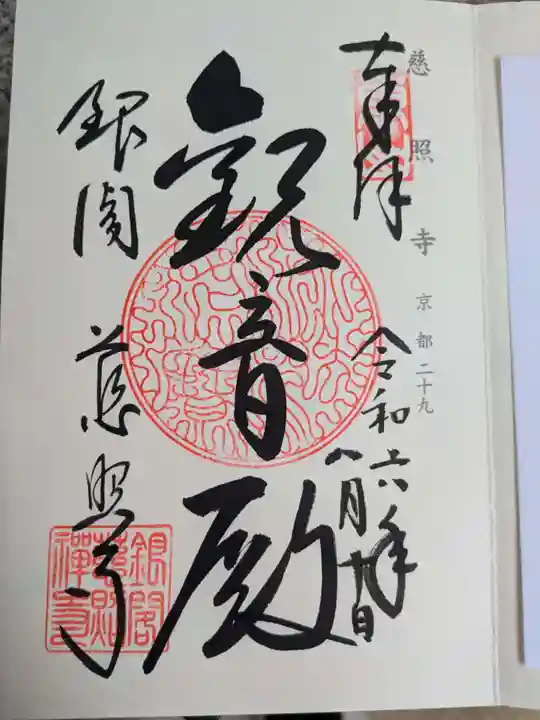 慈照寺 京都二十九
奉拝
令和六年
八月十九日
觀音殿
銀閣 慈照寺
銀閣
慈照
禅寺